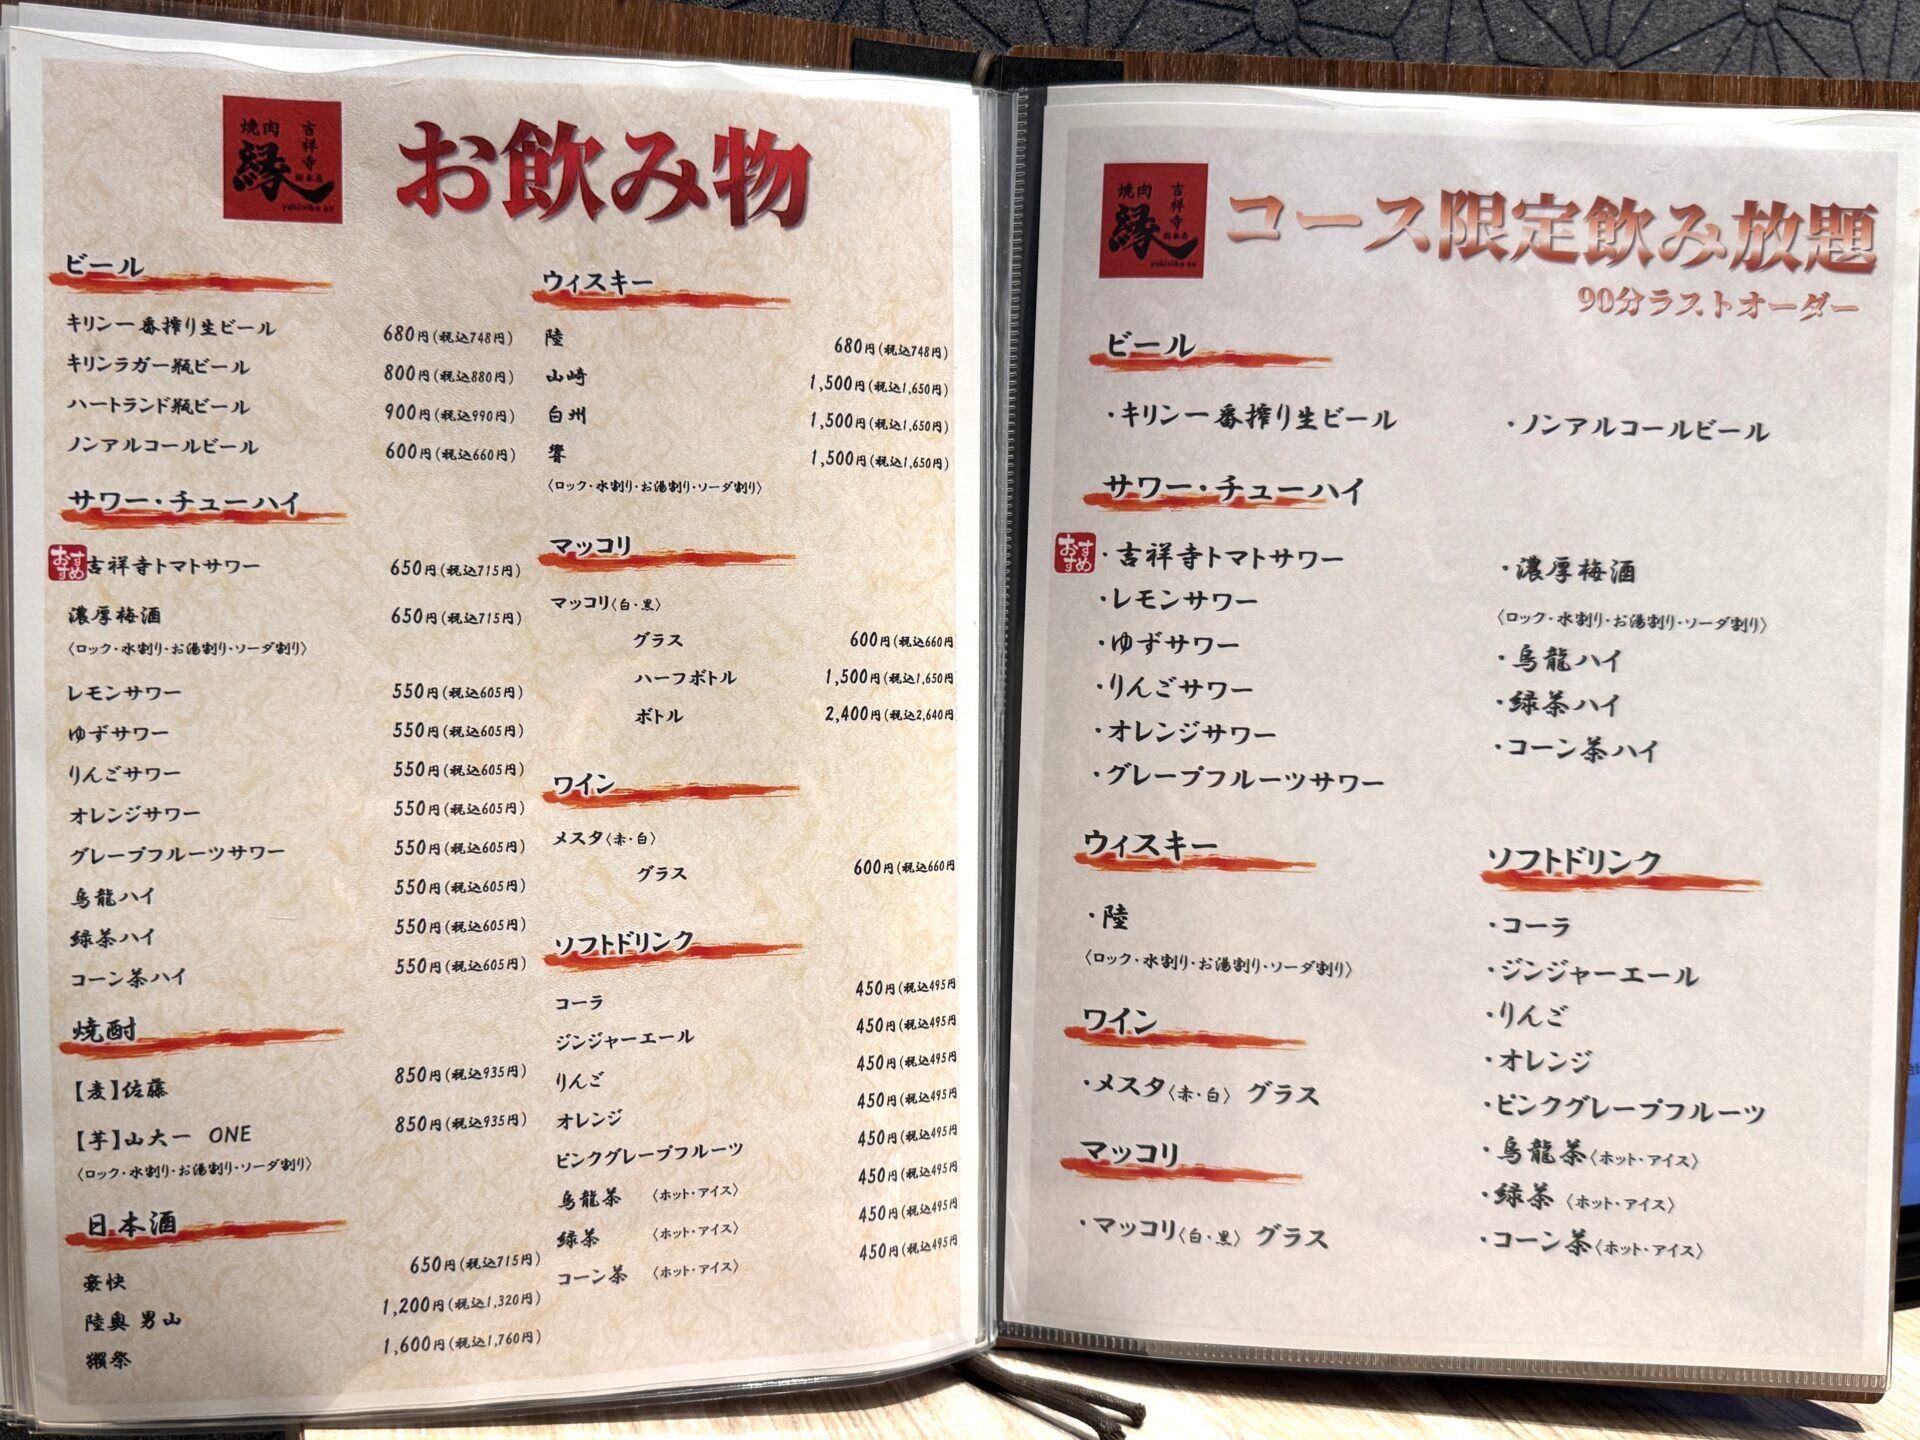 焼肉 縁 吉祥寺 総本店
yakiniku en
お飲み物
ビール
キリン一番搾り生ビール 680円(税込748円)
キリンラガー瓶ビール 800円(税込880円)
ハートランド瓶ビール 900円(税込990円)
ノンアルコールビール 600円(税込660円)
サワー・チューハイ
おすすめ 吉祥寺トマトサワー 650円(税込715円)
濃厚梅酒 650円(税込715円)
〈ロック・水割り・お湯割り・ソーダ割り〉
レモンサワー 550円(税込605円)
ゆずサワー 550円(税込605円)
りんごサワー 550円(税込605円)
オレンジサワー 550円(税込605円)
グレープフルーツサワー 550円(税込605円)
烏龍ハイ 550円(税込605円)
緑茶ハイ 550円(税込605円)
コーン茶ハイ 550円(税込605円)
焼酎
【麦】佐藤 850円(税込935円)
【芋】山大一 ONE 850円(税込935円)
〈ロック・水割り・お湯割り・ソーダ割り〉
日本酒
豪快 650円(税込715円)
陸奥 男山 1,200円(税込1,320円)
獺祭 1,600円(税込1,760円)
ウィスキー
陸 680円(税込748円)
山崎 1,500円(税込1,650円)
白州 1,500円(税込1,650円)
響 1,500円(税込1,650円)
〈ロック・水割り・お湯割り・ソーダ割り〉
マッコリ
マッコリ〈白・黒〉
グラス 600円(税込660円
ハーフボトル 1,500円(税込1,650円
ボトル 2,400円(税込2,640円
ワイン
メスタ〈赤・白〉
グラス 600円(税込660円
ソフトドリンク
コーラ 450円(税込495円
ジンジャーエール 450円(税込495円
りんご 450円(税込495円
オレンジ 450円(税込495円
ピンクグレープフルーツ 450円(税込495円
烏龍茶 〈ホット・アイス〉 450円(税込495円
緑茶 〈ホット・アイス〉 450円(税込495円
コーン茶 〈ホット・アイス〉 450円(税込495円
焼肉 縁 吉祥寺 総本店
yakiniku en
コース限定飲み放題
90分ラストオーダー
ビール
・キリン一番搾り生ビール
・ノンアルコールビール
サワー・チューハイ
おすすめ ・吉祥寺トマトサワー
・レモンサワー
・ゆずサワー
・りんごサワー
・オレンジサワー
・グレープフルーツサワー
・濃厚梅酒
〈ロック・水割り・お湯割り・ソーダ割り〉
・烏龍ハイ
・緑茶ハイ
・コーン茶ハイ
ウィスキー
・陸
〈ロック・水割り・お湯割り・ソーダ割り〉
ワイン
・メスタ〈赤・白〉 グラス
マッコリ
・マッコリ〈白・黒〉 グラス
ソフトドリンク
・コーラ
・ジンジャーエール
・りんご
・オレンジ
・ピンクグレープフルーツ
・烏龍茶〈ホット・アイス〉
・緑茶 〈ホット・アイス〉
・コーン茶〈ホット・アイス〉